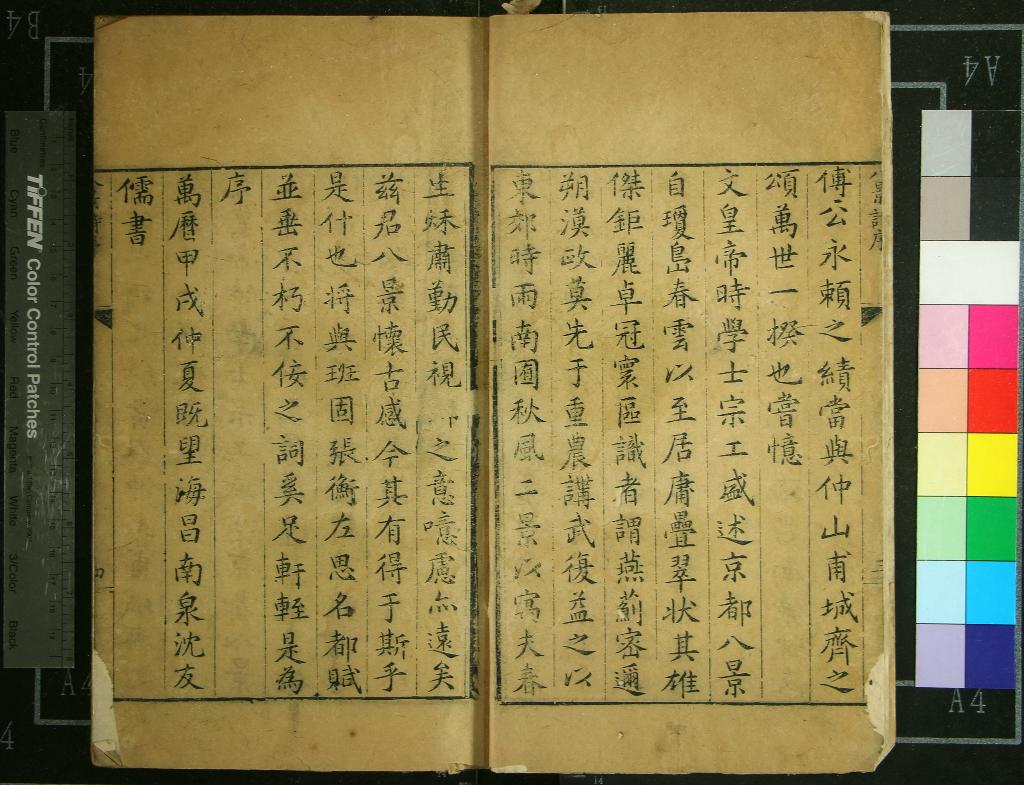 傅公永賴之績當與仲山甫城齊之
頌萬世一揆也嘗憶
文皇帝時學士宗工盛述京都八景
自瓊島春雲以至居庸疊翠狀其雄
傑鉅麗卓冠寰區識者謂燕薊密邇
朔漠政莫先于重農講武復益之以
東郊時雨南囿秋風二景以寓夫春
生秋肅勤民視之意噫慮亦遠矣
茲君八景懷古感今其有得于斯乎
是什也將與班固張衡左思名都賦
並垂不朽不佞之詞奚足軒輊是為
序
萬曆甲戌仲夏既望海昌南泉沈友
儒書
TIFFEN Color Control Patches
Blue
Cyan
Green
Yellow
Red
Magenta
White
3/Color
Black
B4
A4
A4
A4
A4